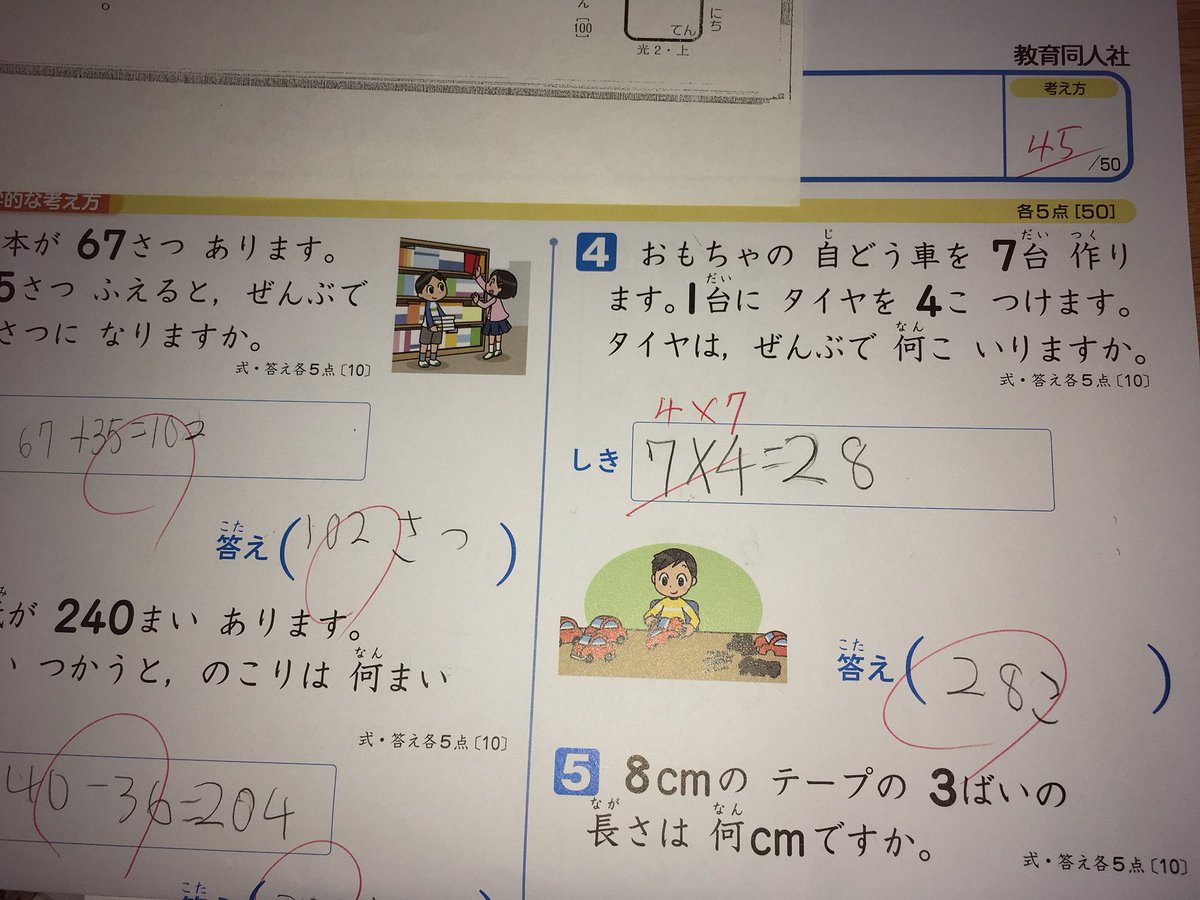 。
[100]
てん
にち
光2・上
教育同人社
考え方
45
/50
的な考え方
各5点[50]
本が 67さつ あります。
5さつ ふえると, ぜんぶで
さつに なりますか。
式・答え各5点〔10〕
67+35=102
答え(102さつ)
こた
が 240まい あります。
い つかうと, のこりは 何まい
なん
式・答え各5点〔10〕
40-36=204
こた
4 おもちゃの 自どう車を 7台 作り
じ だい つく
ます。1台に タイヤを 4こ つけます。
だい
タイヤは, ぜんぶで 何こ いりますか。
なん
式・答え各5点〔10〕
4×7
しき 7×4=28
こた
答え(28こ)
5 8cmの テープの 3ばいの
長さは 何cmですか。
なが なん
式・答え各5点〔10〕